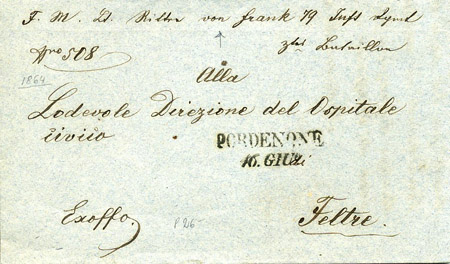 F. M. Lt. Ritter von Frank 79 Inft Rgmt
ztes Bataillon
Nro 508
1864
Alla
Lodevole Direzione del Ospitale
civico
PORDENONE
16. GIU
Exoffo.
P 26-
Feltre.